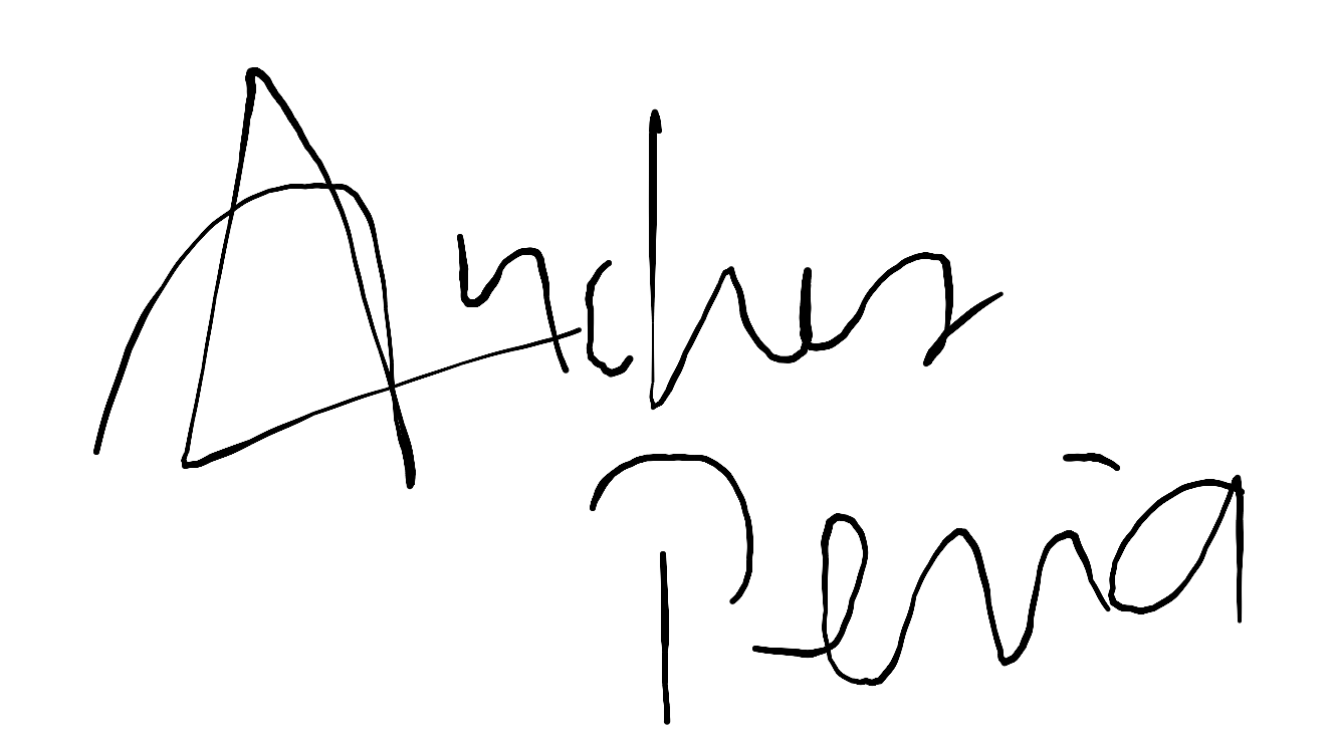 Andres
Peña